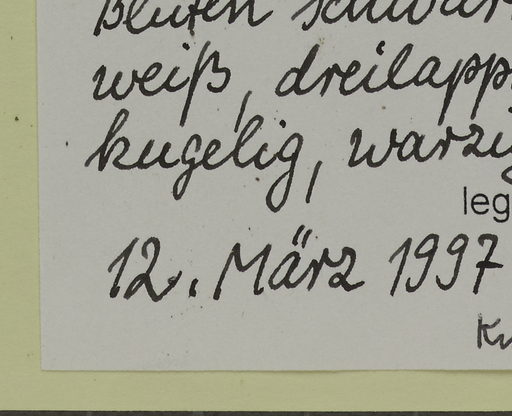 Blüten schwar
weiß, dreilapp
kugelig, warzig
leg
12. März 1997